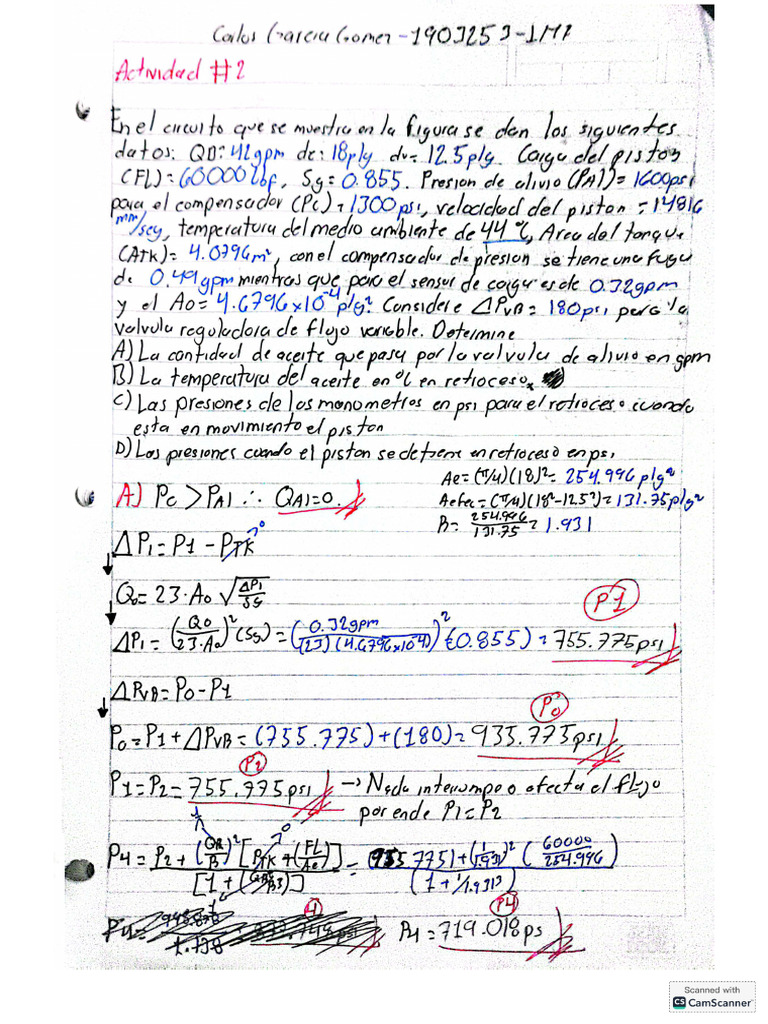 Carlos Garcia Gomez - 1903253 - 1M2
Actividad #2
En el circuito que se muestra en la figura se dan los siguientes
datos: QB: 42gpm de: 18plg dv= 12.5plg. Carga del piston
(FL) = 60000 lbf, Sg = 0.855. Presion de alivio (PA1) = 1600psi
para el compensador (Pc) = 1300 psi, velocidad del piston = 14816
mm/seg, temperatura del medio ambiente de 44 °C, Area del tanque
(ATK) = 4.0796 m², con el compensador de presion se tiene una fuga
de 0.49gpm mientras que para el sensor de carga es de 0.32gpm
y el Ao = 4.6796x10⁻⁴ plg². Considere ΔPVB = 180psi para la
valvula reguladora de flujo variable. Determine
A) La cantidad de aceite que pasa por la valvula de alivio en gpm
B) La temperatura del aceite en °C en retroceso.
C) Las presiones de los manometros en psi para el retroceso cuando
esta en movimiento el piston
D) Las presiones cuando el piston se detiene en retroceso en psi.
Ae = (π/4)(18)² = 254.996 plg²
A) Pc > PA1 ∴ QA1=0.
Aefec = (π/4)(18²-12.5²) = 131.75plg²
B = 254.996/131.75 = 1.931
ΔP1 = P1 - PTK → 0
Qo = 23·Ao √(ΔP1/SG)
P1
ΔP1 = (Qo/23·Ao)² (Sg) = (0.32gpm/(23)(4.6796x10⁻⁴))² (0.855) = 755.775psi
ΔPVB = Po - P1
Po
Po = P1 + ΔPVB = (755.775) + (180) = 935.775psi
P2
P1 = P2 = 755.775psi → Nada interrumpe o afecta el flujo
por ende P1 = P2
P4 = P2 + (QR/B)² [PTK + (FL/Ae)] / [1 + (QR²/B³)] = (755.775) + (1/1.931)² (60000/254.996) / (1 + 1/1.931³)
P4
P4 = 719.018 psi
Scanned with
CS CamScanner